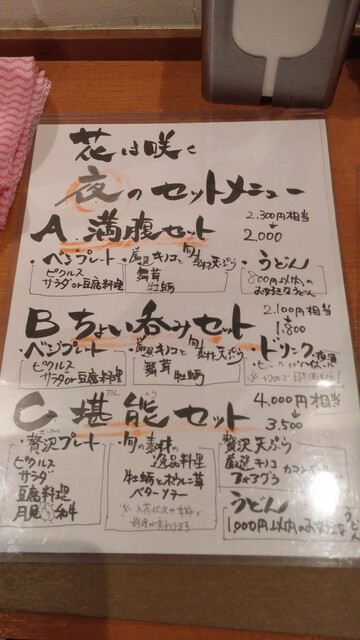 花は咲く
夜のセットメニュー
A. 満腹セット 2,300円相当
2,000
・ベジプレート ・厳選キノコと旬素材天ぷら ・うどん
ピクルス
サラダor豆腐料理
舞茸
牡蛎
800円以内の
お好きなうどん
B ちょい呑みセット 2,100円相当
1,800
・ベジプレート ・厳選キノコと旬素材天ぷら ・ドリンク
ピクルス
サラダor豆腐料理
舞茸
牡蛎
C 堪能セット 4,000円相当
3,500
・贅沢プレート ・旬の素材の逸品料理 ・贅沢天ぷら
ピクルス
サラダ
豆腐料理
月見 和牛
牡蛎とホウレン草
バターソテー
厳選キノコ カマンベール
フォアグラ
うどん
1,000円以内のお好きな